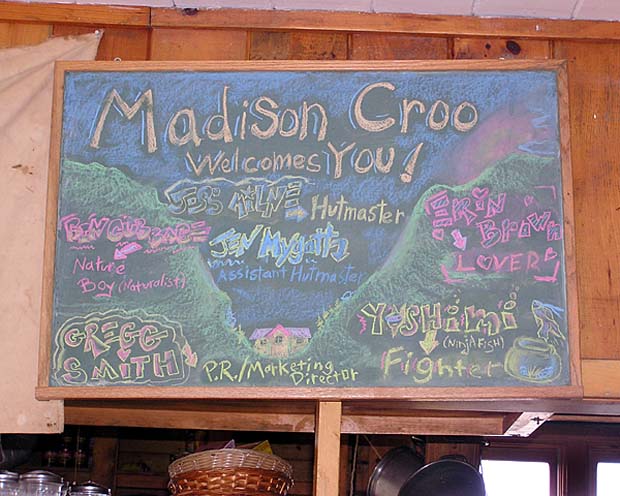 Madison Croo
Welcomes You!
JESS MILNE Hutmaster
JEN Mygatt
Assistant Hutmaster
Nature
Boy (Naturalist)
ERIN
Brown
LOVER
GREGG
SMITH
P.R./Marketing
Director
YOSHIMI
(NINJA FISH)
Fighter